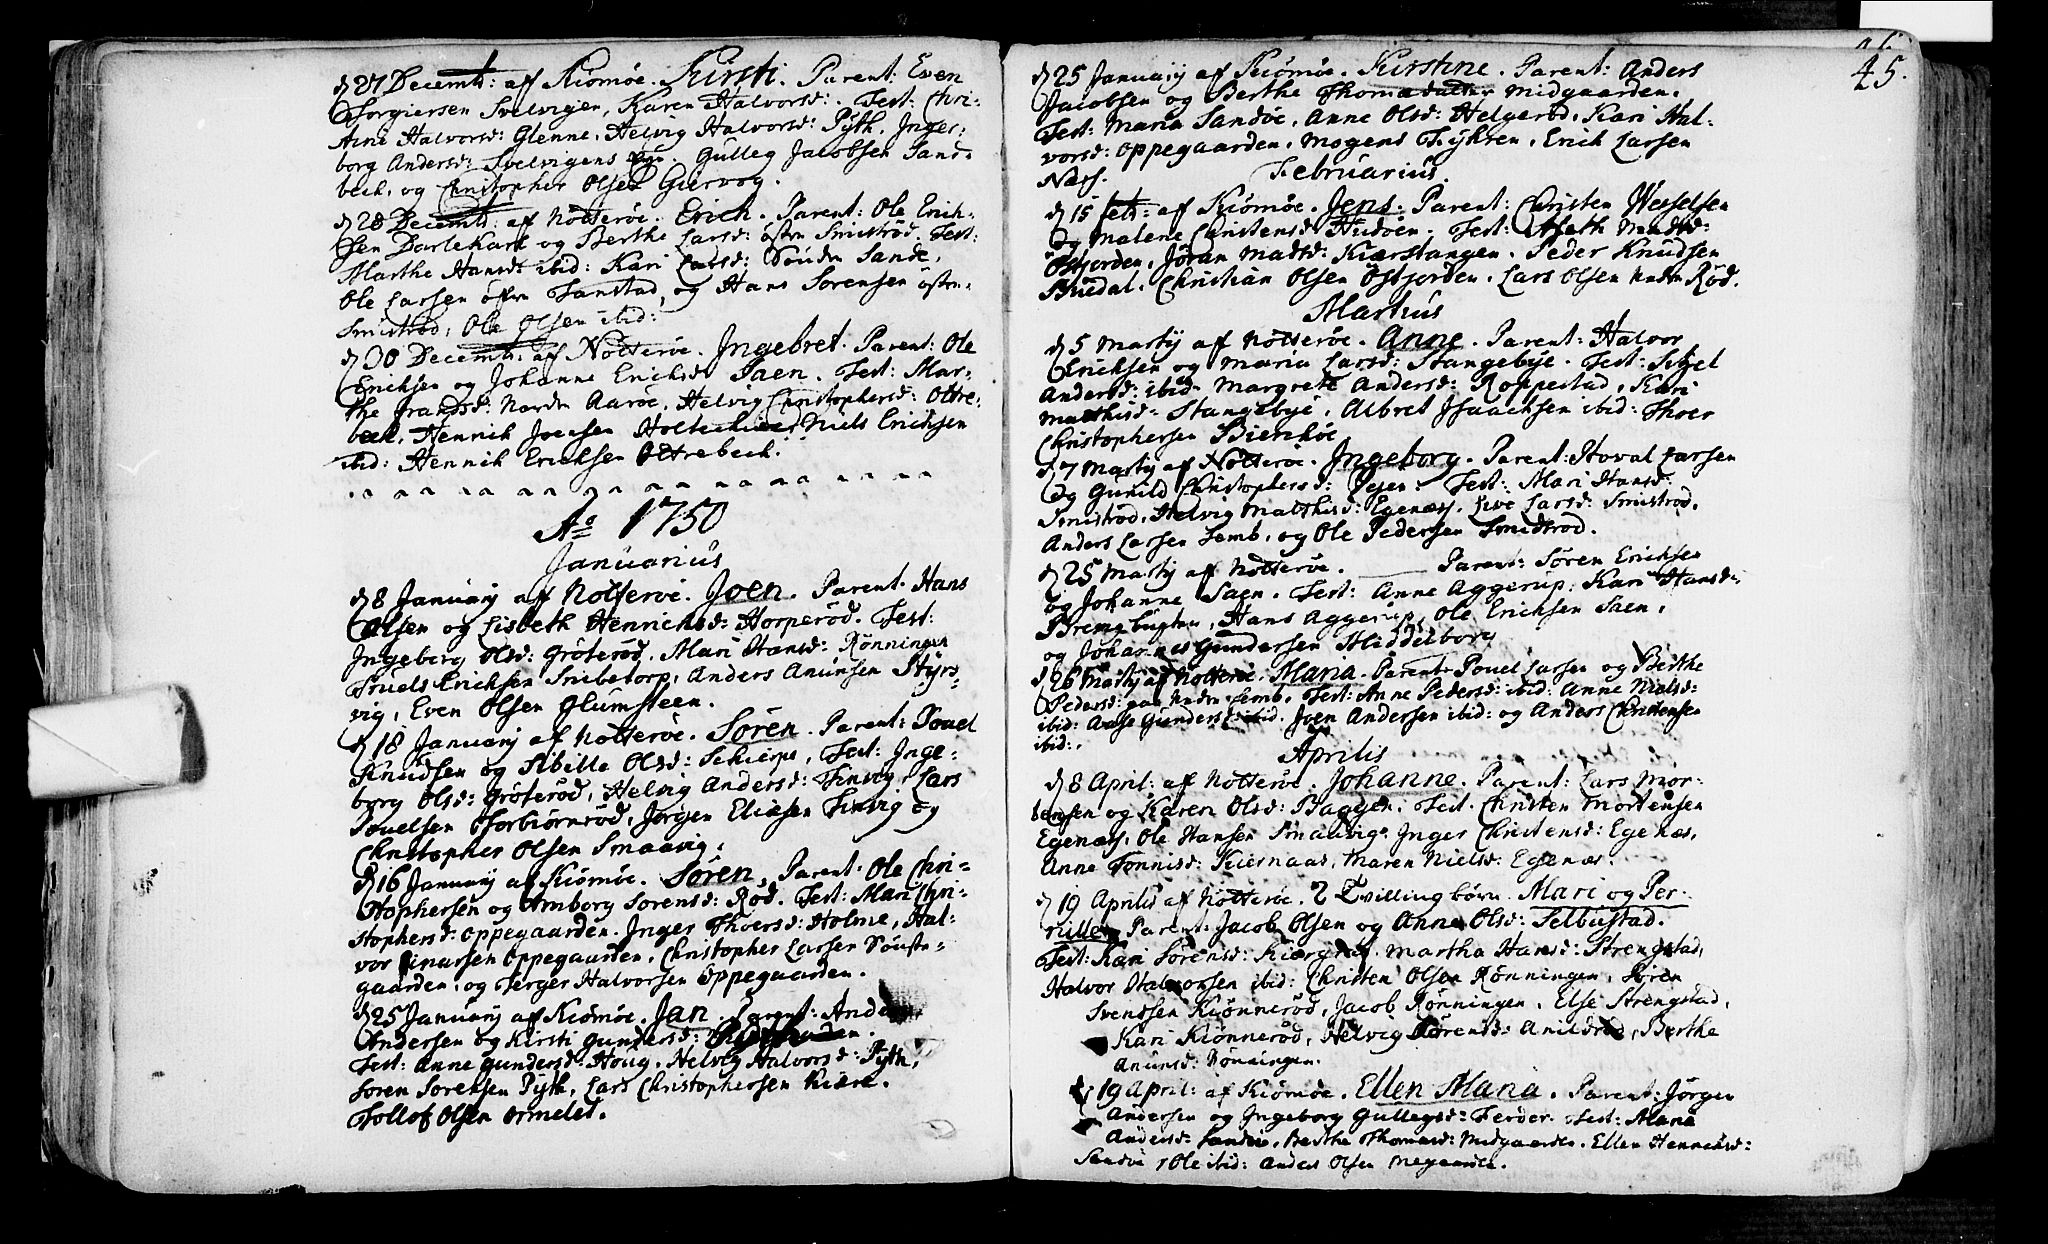 d 27 Decembr: af Kiömöe. Kirsti. Parent: Even
Torgiersen Svelvigen, Karen Halvorsd: Test: Chri-
Arne Halvorsd: Glenne, Helvig Halvorsd: Pÿth, Inger-
borg Andersd: Svelvigens Gulleg Jacobsen Sand-
bech, og Christopher Olsen Giervog.
d 28 Decembr: af Nötteröe. Erich. Parent: Ole Erich-
sen Dorlehard og Berthe Larsd: östre Smiströd. Test:
Marthe Hansd: ibid: Kari Larsd: Söndre Sande,
Ole Larsen öfre Tanstad, og Hans Sorensen östre-
Smiströd, Ole Olsen ibid:
d 30 Decembr: af Nötteröe. Ingebret. Parent: Ole
Erichsen og Johanne Erichsd: Saen. Test: Mar-
the Fransd: Nordre Aaröe, Helvig Christophersd: Oltre-
bech, Henrich Joensen Holtekiær, Niels Erichsen
ibid: Henrich Erichsen Oltrebech.
Ao 1750
Januarius
d 8 Januarij af Nötteröe. Joen. Parent: Hans
Olsen og Lisbeth Henrichsd: Horperöd. Test:
Ingeborg Olsd: Gröteröd. Mari Hansd: Rönningen
Truels Erichsen Snibetorp, Anders Anunsen Styrs-
vig, Even Olsen Glumsteen.
d 18 Januarij af Nötteröe. Sören. Parent: Povel
Knudsen og Sibille Olsd: Schierpe, Test: Inge-
borg Olsd: Gröteröd, Helvig Andersd: Tinvig, Lars
Povelsen Torbiörnröd, Jörgen Eliasen Tinvig og
Christopher Olsen Smaavig.
d 16 Januarij af Kiömöe. Sören, Parent: Ole Chri-
stophersen og Amborg Sorensd: Röd. Test: Mari Chri-
stophersd: Oppegaarden. Inger Thoersd: Holme, Hal-
vor Einarsen Oppegaarden, Christopher Larsen Söndre-
gaarden, og Terger Halvorsen Oppegaarden.
d 25 Januarij af Kiömöe. Jan. Parent: Anders
Andersen og Kirsti Gundersd:
Test: Anne Gundersd: Houg. Helvig Halvorsd: Pÿth,
Soren Sorensen Pÿth, Lars Christophersen Kiære.
Tollof Olsen Ormelet.
45.
d 25 Januarij af Kiömöe. Kirstine. Parent: Anders
Jacobsen og Berthe Thomædatter Midgaarden.
Test: Maria Sandöe, Anne Olsd: Helgeröd, Kari Hal-
vorsd: Oppegaarden, Mogens Tÿkren, Erich Larsen
Ness.
Februarius.
d 15 Febr: af Kiömöe. Jens. Parent: Christen Wesselsen
og Malene Christensd: Hudöen. Test: Aseth Madsd:
Östjorden, Jöran Madsd: Kiærstangen. Peder Knudsen
Buedal, Christian Olsen Östjorden, Lars Olsen nedre Röd.
Martius
d 5 Martij af Nötteröe. Anne. Parent: Halvor
Erichsen og Maria Larsd: Stangebÿe. Test: Sitzel
Andersd: ibid: Margrete Andersd: Roppestad, Kari
Mathisd: Stangebÿe, Albret Jsaachsen ibid: Thoer
Christophersen Bierchöe
d 7 Martij af Nötteröe. Ingeborg. Parent: Hoval Larsen
og Gunild Christophersd: Vejen: Test: Mari Hansd:
Smiströd, Helvig Mathisd: Egenæs, Live Larsd: Smiströd,
Anders Larsen Lemb, og Ole Pedersen Smidtröd.
d 25 Martij af Nötteröe. Parent: Sören Erichsen
og Johanne Saen. Test: Anne Aggerup, Kari Hansd:
Bremsbugten, Hans Aggerup, Ole Erichsen Saen,
og Johannes Gundersen Middelborg
d 26 Martij af Nötteröe. Maria. Parent: Povel Larsen og Berthe
Pedersd: paa Nedre Lemb, Test: Anne Pedersd: ibid: Anne Nielsd:
ibid: Aase Gundersd: ibid. Joen Andersen ibid: og Anders Christensen
ibid:.
Aprilis
d 8 April: af Nötteröe. Johanne. Parent: Lars Mor-
tensen og Karen Olsd: Baggen. Test: Christen Mortensen
Egenæs, Ole Hansen Smaavig, Inger Christensd: Egenæs,
Anne Tonnisd: Kiernaas, Maren Nielsd: Egenæs.
d 19 Aprilis af Nötteröe. 2 Tvillingbörn. Mari og Per-
nille. Parent: Jacob Olsen og Anne Olsd: Selbustad.
Test: Kari Sörensd: Martha Hansd: Strengstad,
Halvor Halvorsen ibid: Christen Olsen Rönningen, Sören
Svendsen Kiönneröd, Jacob Rönningen. Else Strengstad,
Kari Kiönneröd, Helvig Sörensd: Anildröd, Berthe
Anunsd: Rönningen.
d 19 April: af Kiömöe. Ellen Maria. Parent: Jörgen
Andersen og Ingeborg Gullegsd: Ferder. Test: Maria
Andersd: Sandöe, Berthe Thomæsd: Midgaarden. Ellen Hennichsd:
Sandöe, Ole ibid: Anders Olsen Megaarden.